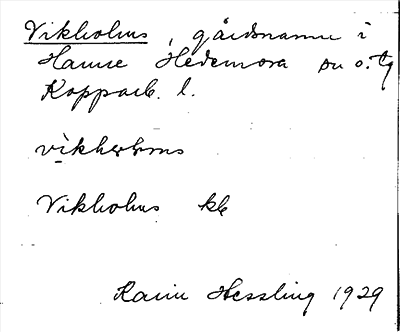 Vikholms, gårdsnamn i
Hamre Hedemora sn o. tg
Kopparb. l.
Vikholms kb
Karin Hessling 1929